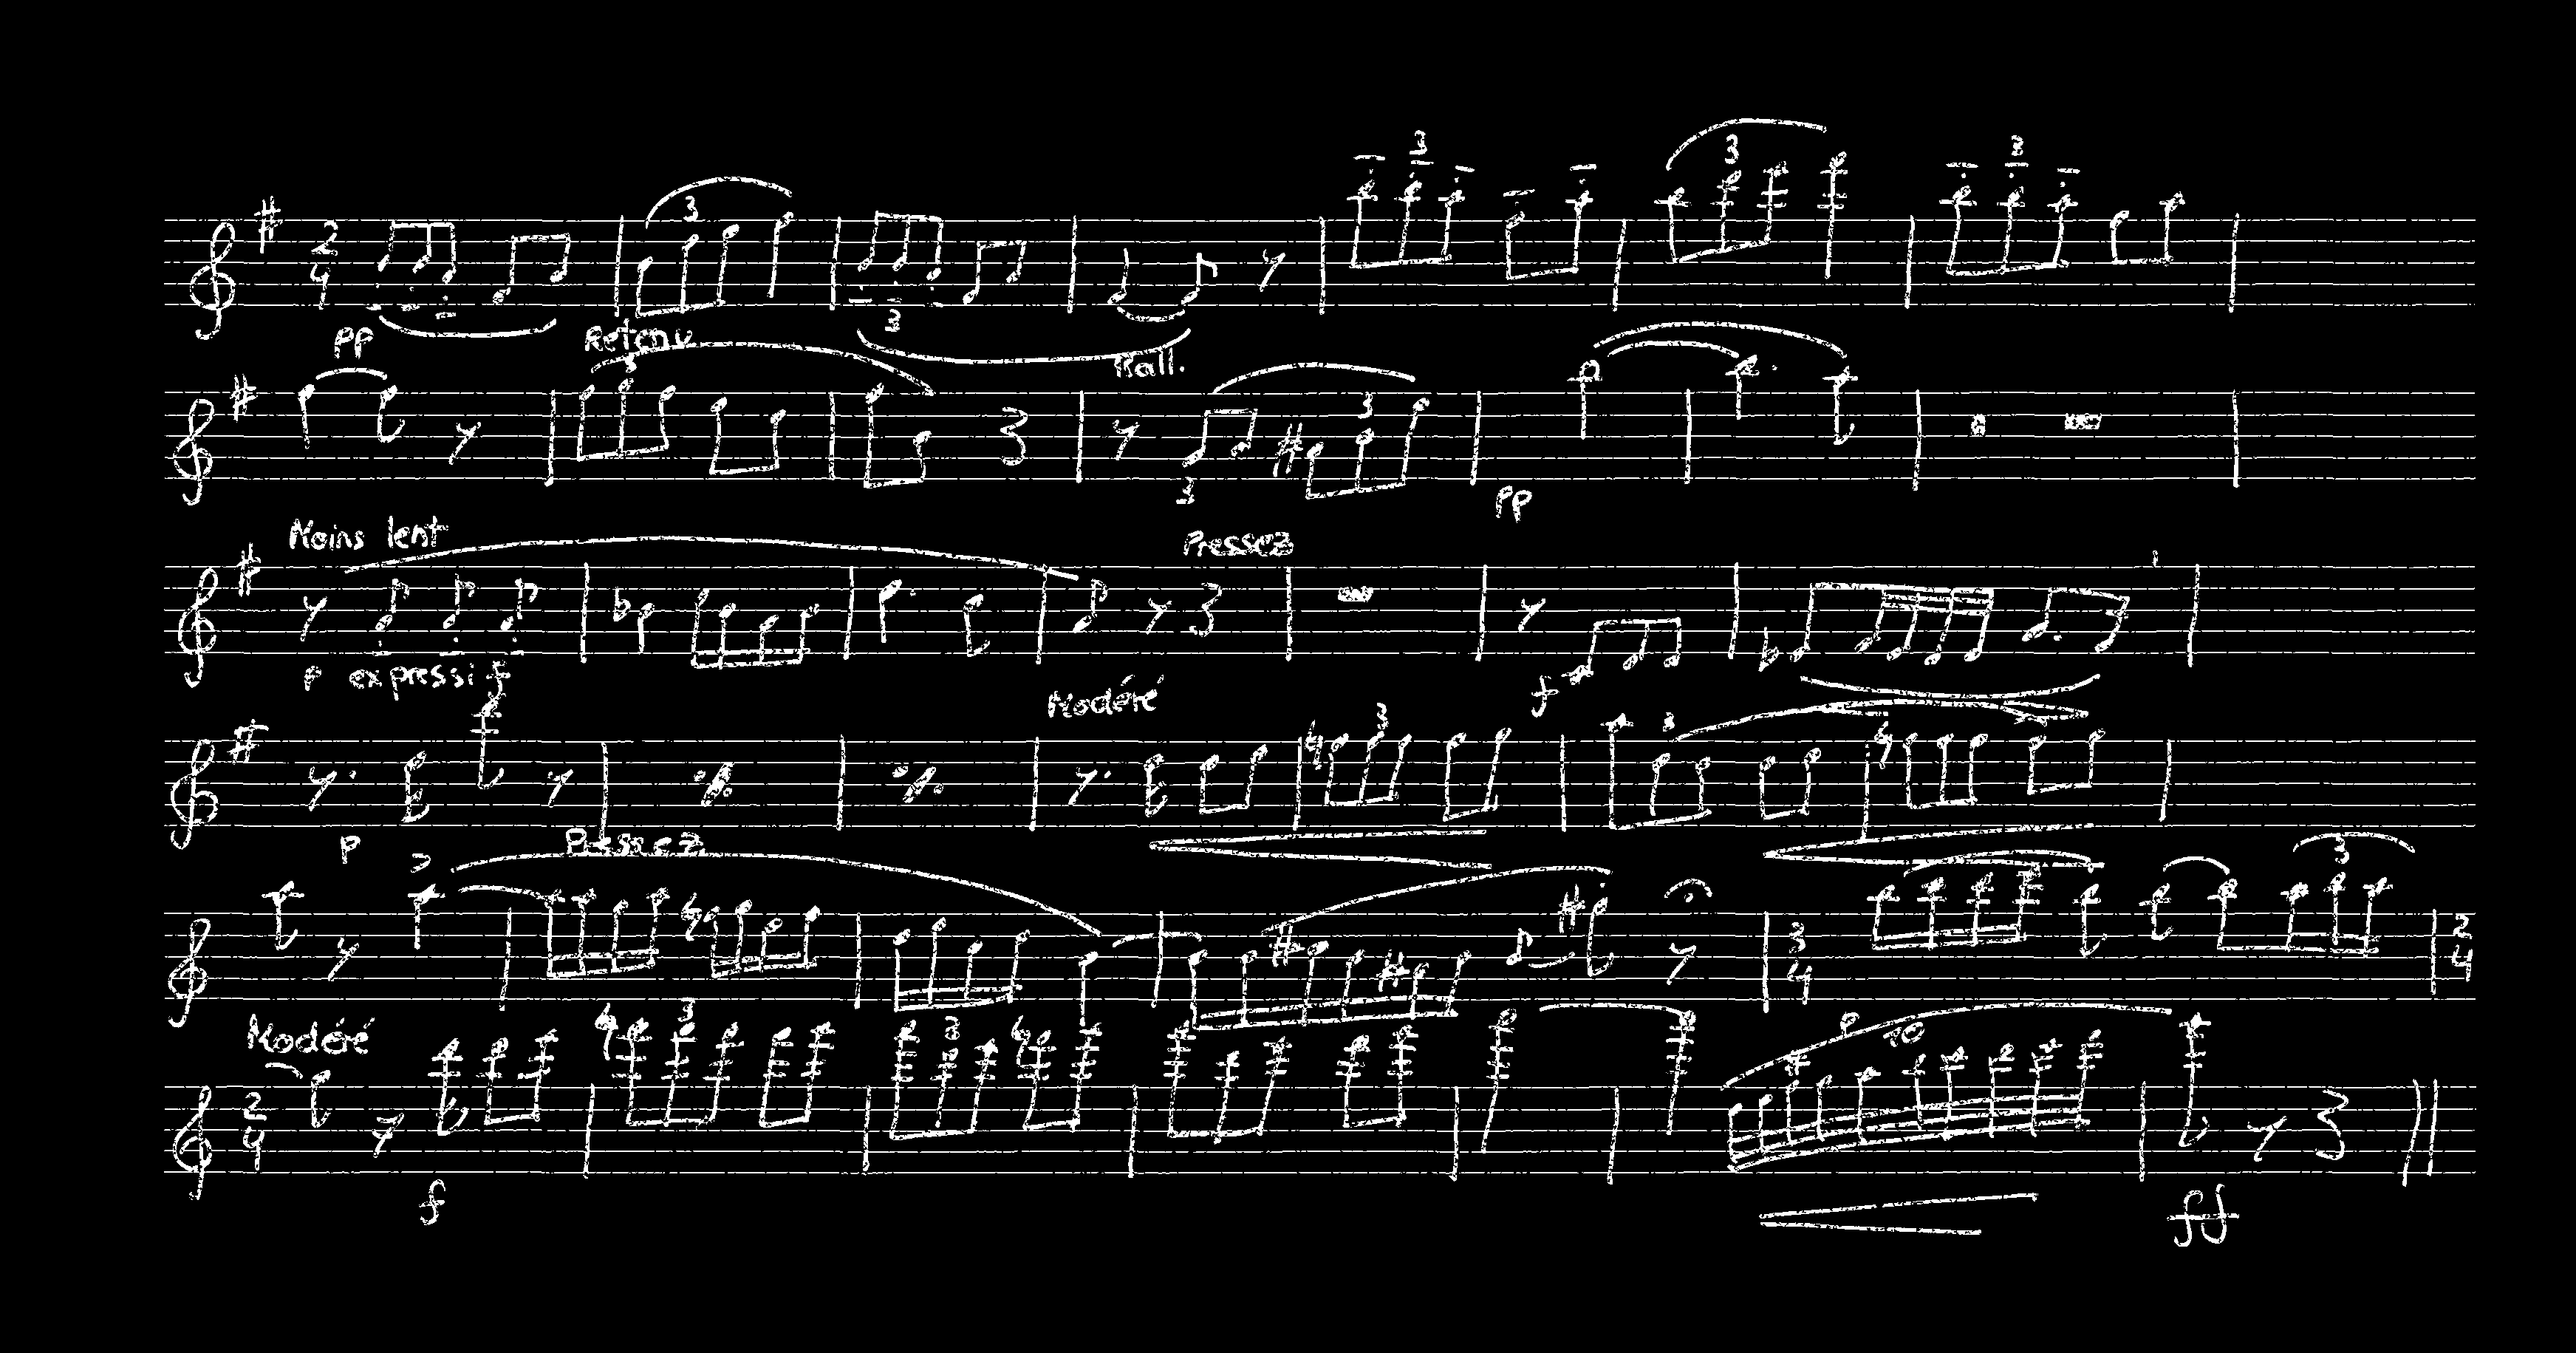 3 3 3
2 4 3
pp Retenu 3 Rall.
3 3
3 pp
Moins lent Pressez
p expressif f
Modéré 3 3
p Pressez
3
3 4 2 4
Modéré 3 3 10
2 4
f ff